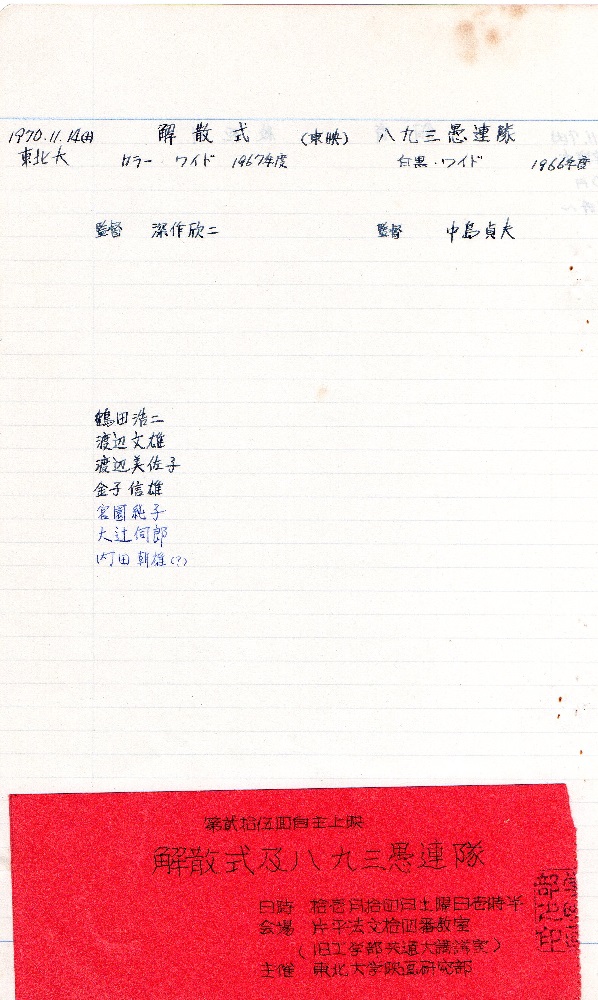 1970.11.14(土) 解散式 (東映) 八九三愚連隊
東北大 カラー・ワイド 1967年度 白黒・ワイド 1966年度
監督 深作欣二 監督 中島貞夫
鶴田浩二
渡辺文雄
渡辺美佐子
金子信雄
宮園純子
大辻伺郎
内田朝雄(?)
第貳拾伍回自主上映
解散式及八九三愚連隊
日時 拾壱月拾四日土曜日壱時半
会場 片平法文拾四番教室
(旧工学部共通大講義室)
主催 東北大学映画研究部